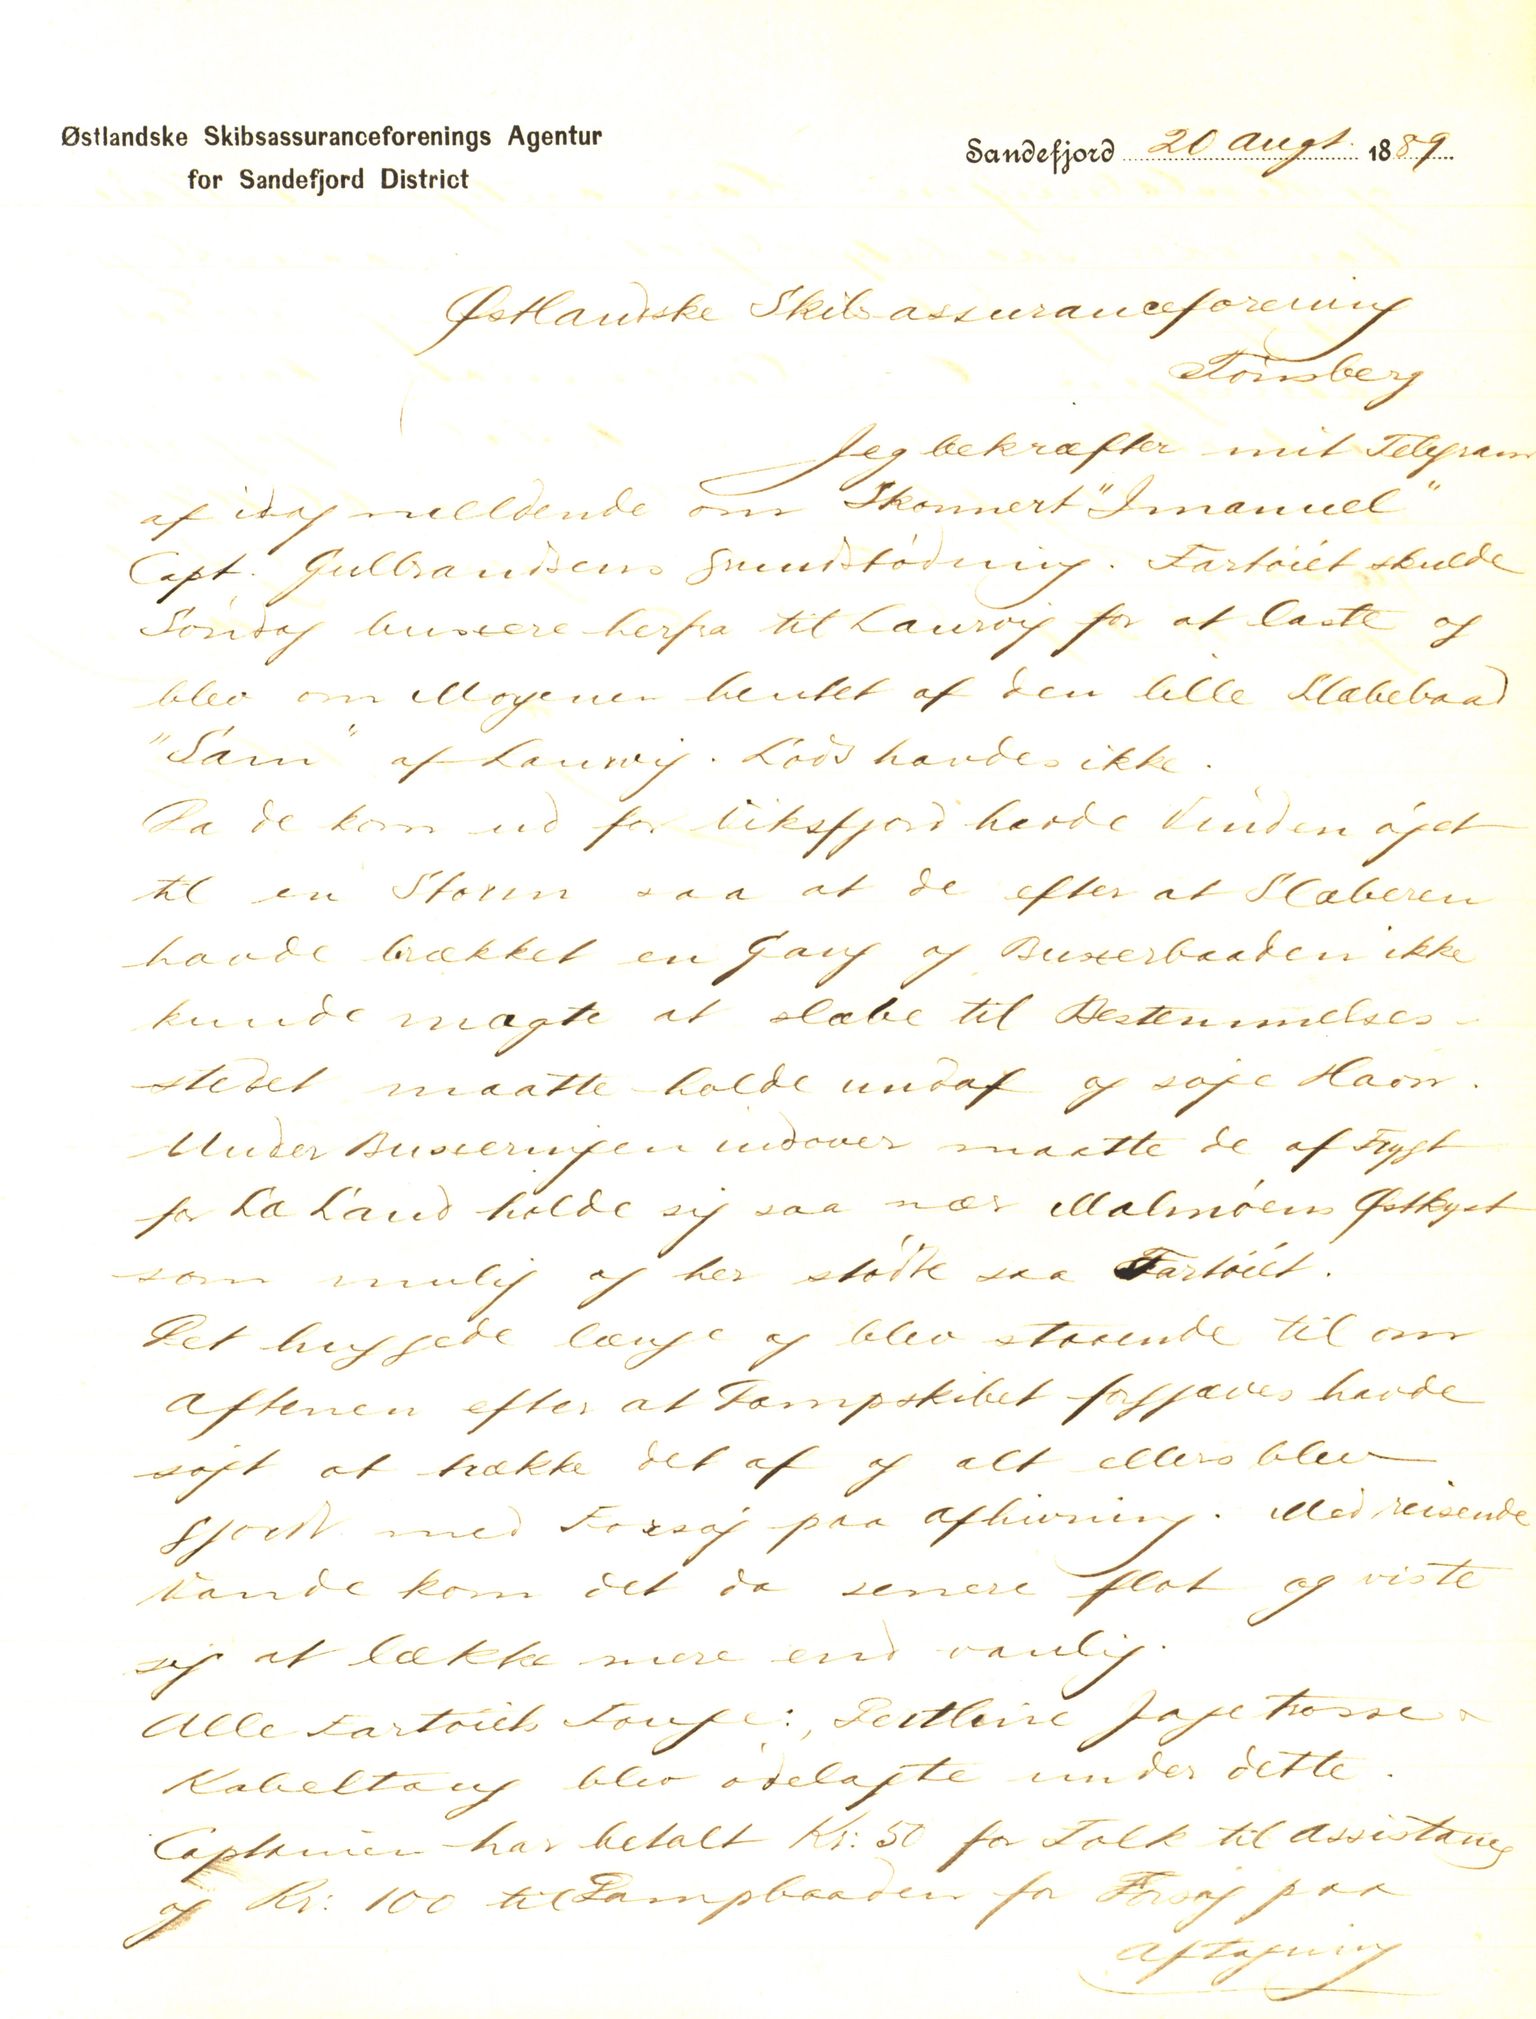 Østlandske Skibsassuranceforenings Agentur
for Sandefjord District
Sandefjord 20 Augt. 1889
Østlandske Skibsassuranceforening
Tönsberg
Jeg bekræfter mit Telegram
af idag meldende om Skonnert "Imanuel"
Capt. Gulbrandsens Grundstødning. Fartöiet skulde
Söndag buxere herfra til Laurvig for at laste og
blev om Morgenen hentet af den lille Slæbebaad
"Sam" af Laurvig. Lods havdes ikke.
Da de kom ud for Viksfjord havde Vinden öget
til en Storm saa at de efter at Slæberen
havde brækket en Gang og Buxerbaaden ikke
kunde magte at slæbe til Bestemmelses-
stedet maatte holde undaf og söge Havn.
Under Buxeringen indover maatte de af Frygt
for Læ Land holde sig saa nær Malmöens Østkyst
som mulig og her stödte saa Fartöiet.
Det huggede længe og blev staaende til om
Aftenen efter at Dampskibet forgjæves havde
sögt at trække det af og alt ellers blev
gjordt med Forsög paa afhivning. Med reisende
Vande kom det da senere flot og viste
sig at lække mere end vanlig.
Alle Fartöiets Touge: Pertline Jagetrosse &
Kabeltoug blev ödelagte under dette.
Captainen har betalt Kr: 50 for Folk til Assistance
og Kr: 100 til Dampbaaden for Forsög paa
Aftagning